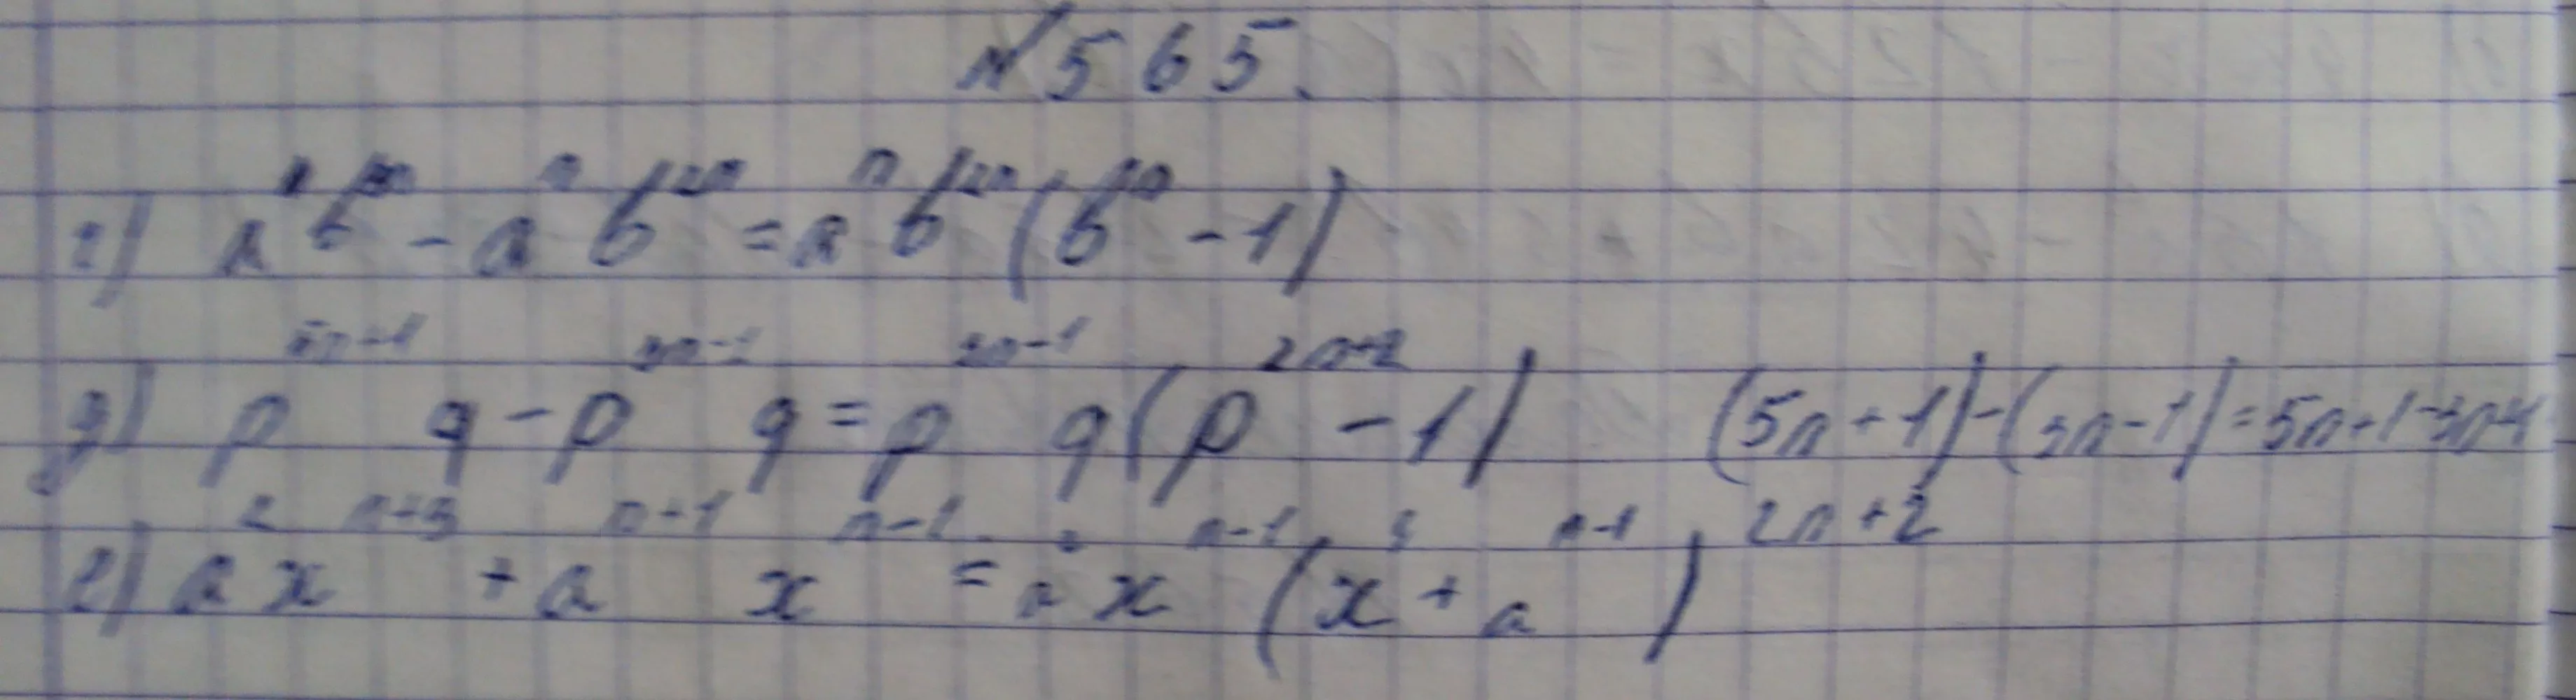 № 565.
г) aⁿb³ⁿ - aⁿb²ⁿ = aⁿb²ⁿ(bⁿ - 1)
д) p⁵ⁿ⁺¹q - p³ⁿ⁻¹q = p³ⁿ⁻¹q(p²ⁿ⁺² - 1) (5n+1)-(3n-1)=5n+1-3n+1
2n+2
е) a²xⁿ⁺³ + aⁿ⁺¹xⁿ⁻¹ = a²xⁿ⁻¹(x⁴ + aⁿ⁻¹)